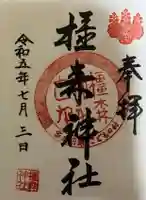 奉拝
橿森神社
令和五年七月三日